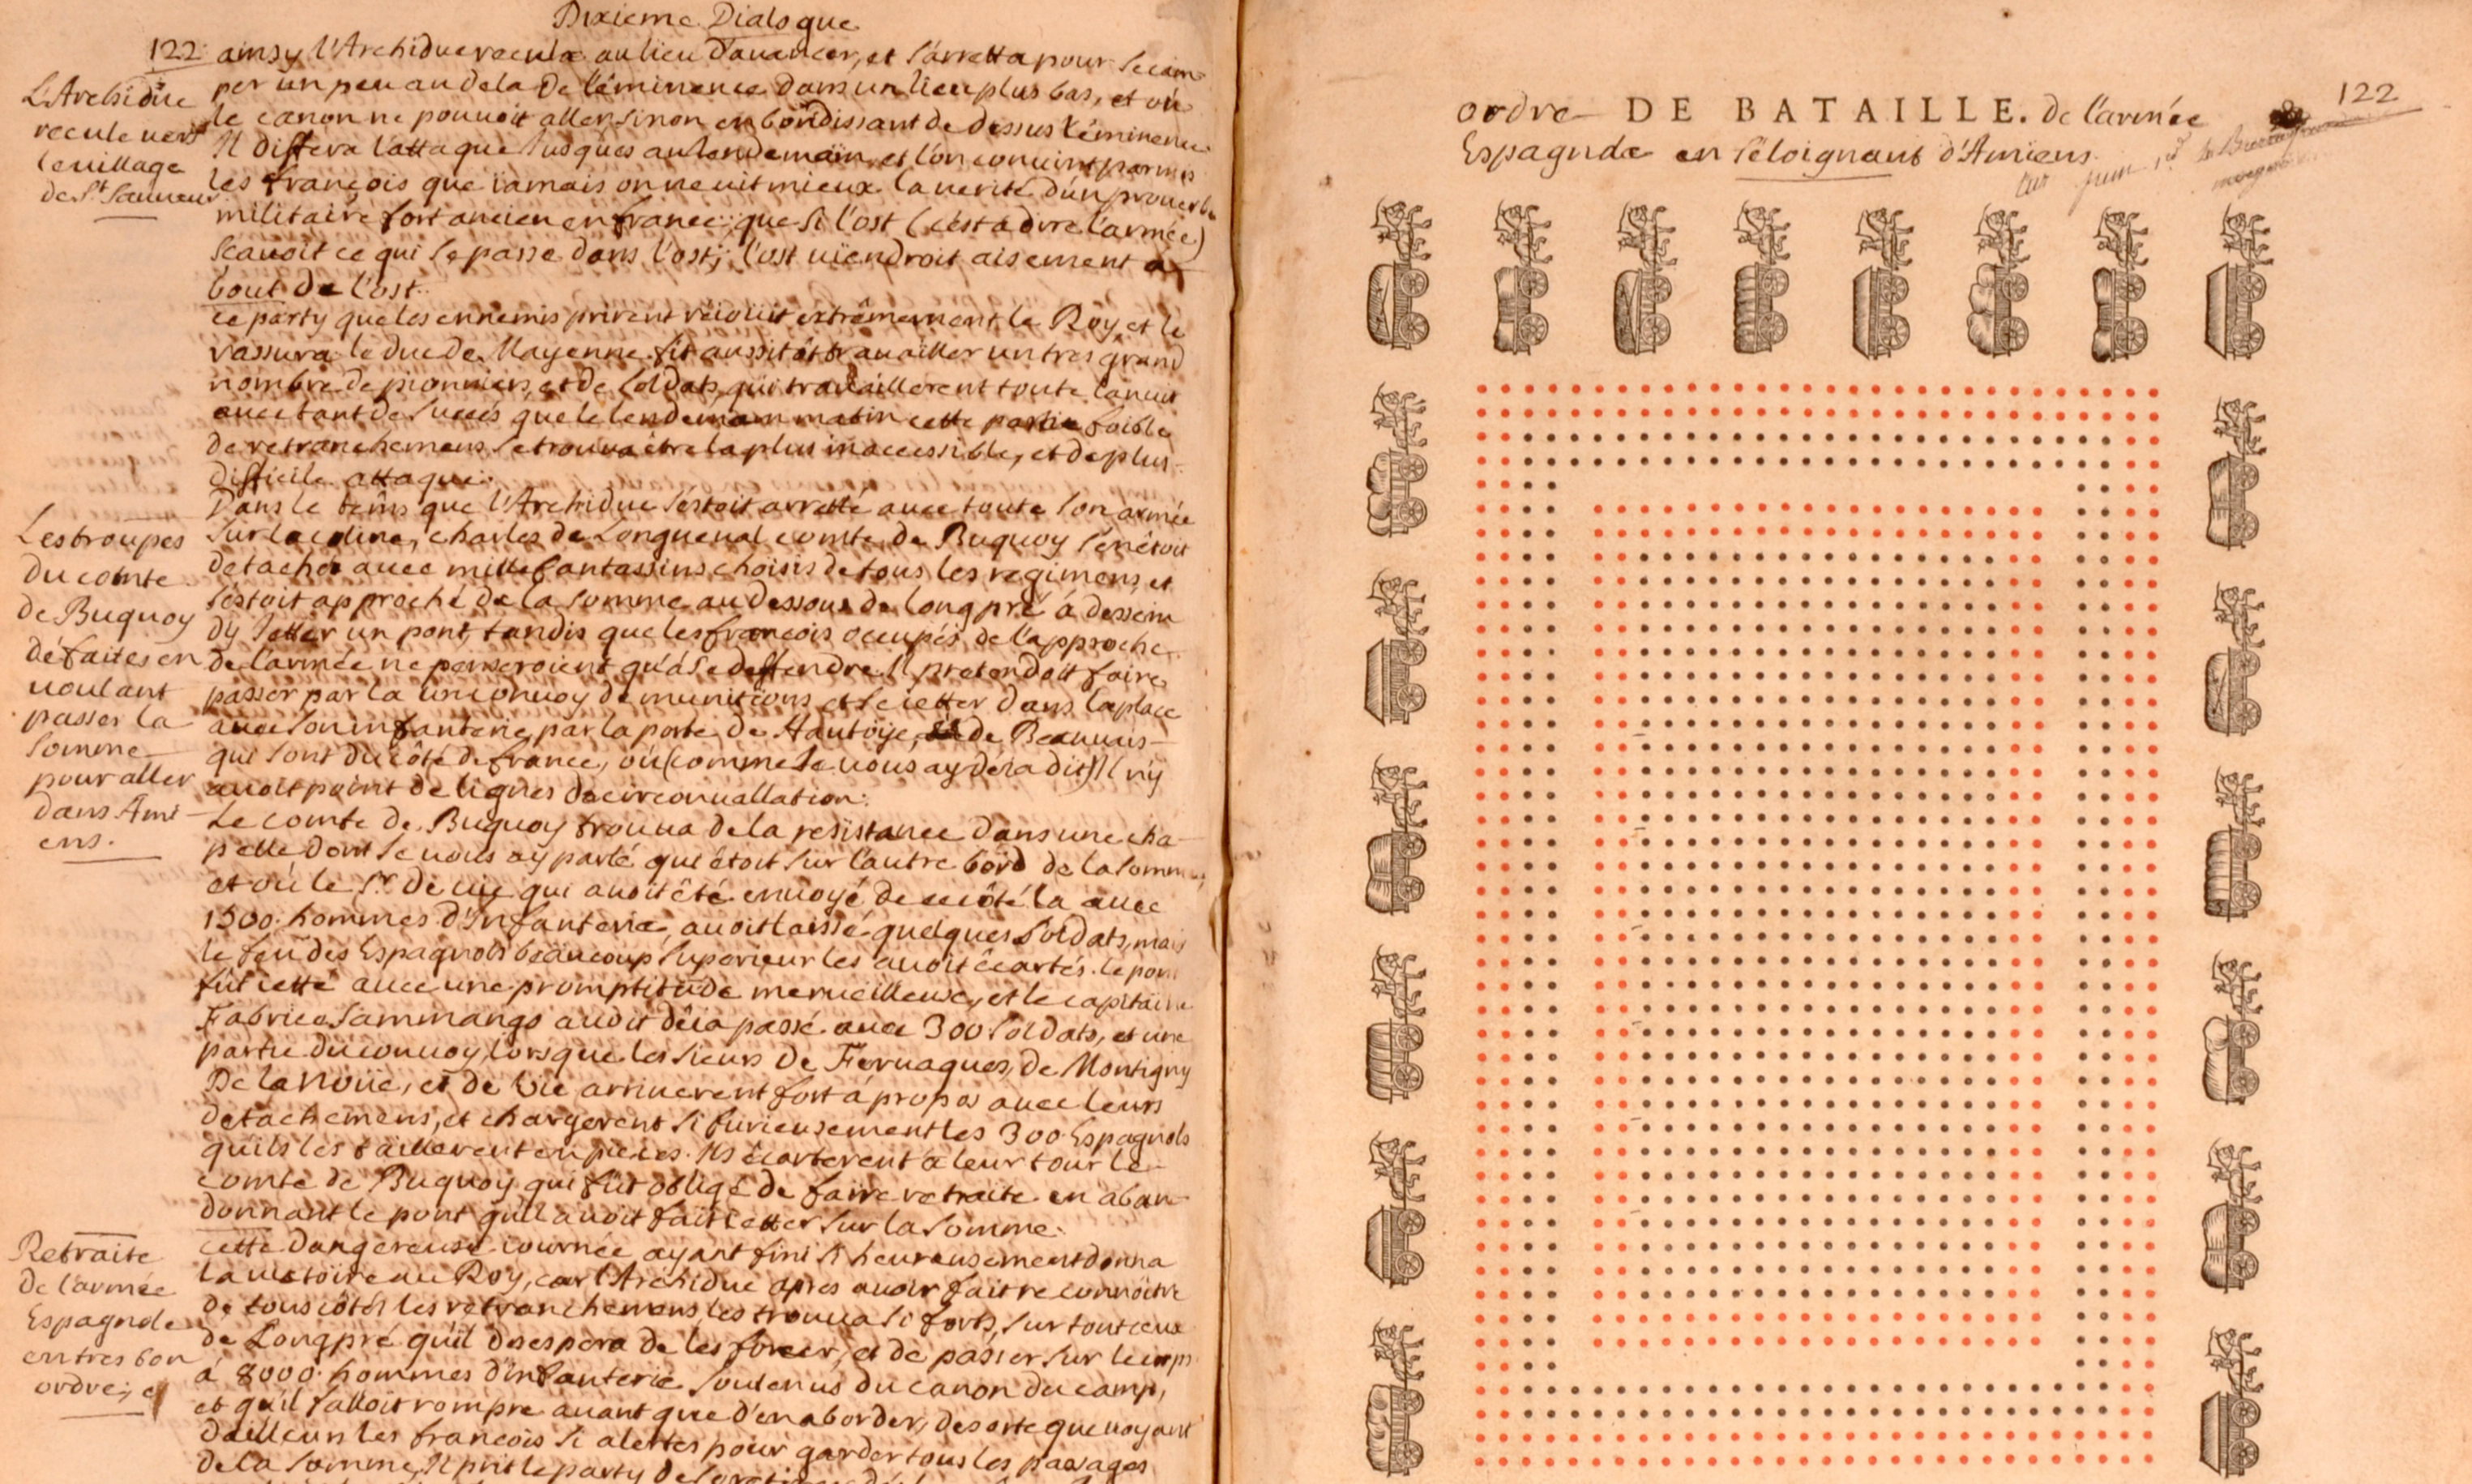 Dixieme Dialogue
122. ainsy l'Archiduc recula au lieu d'auancer, et s'arretta pour se cam-
per un peu au dela de l'éminence dans un lieu plus bas, et où
le canon ne pouuoit aller sinon en bondissant de dessus l'éminence
Il differa l'attaque Jusques au lendemain, et l'on conuint parmis
les françois que iamais on ne uit mieux la uerité d'un prouerbe
militaire fort ancien en france: que si l'ost (c'est a dire l'armée)
scauoit ce qui se passe dans l'ost; l'ost uiendroit aisement a
bout de l'ost.
ce party que les ennemis prirent réioüit extrêmement le Roy, et le
rassura. le duc de Mayenne fit aussitôt trauailler un tres grand
nombre de pionniers, et de soldats, qui trauaillerent toute la nuit
auec tant de succés que le lendemain matin cette partie foible
de retranchemens se trouua être la plus inaccessible, et de plus
difficile attaque.
Dans le tems que l'Archiduc s'estoit arretté auec toute son armée
sur la coline, charles de Longueual comte de Buquoy s'en étoit
detaché auec mille fantassins choisis de tous les regimens, et
s'estoit approché de la somme au dessous de long pré à dessein
d'y Jetter un pont, tandis que les françois occupés de l'approche
de l'armée ne penseroient qu'à se deffendre. Il pretendoit faire
passer par la un conuoy de munitions et se ietter dans la place
auec son infanterie, par la porte de Hautoye, de Beauuis-
qui sont du côté de france, où (comme Je uous ay deia dit) Il n'y
auoit point de lignes de circonuallation.
Le comte de Buquoy trouua de la resistance dans une cha-
pelle dont Je uous ay parlé qui étoit sur l'autre bord de la somme
et où le Sr. de uic qui auoit été enuoyé de ce côté la auec
1500 hommes d'Infanterie, auoit laissé quelques soldats, mais
le feu des Espagnols beaucoup superieur les auoit écartés. le pont
fût ietté auec une promptitude merueilleuse, et le capitaine
Fabrice Sammango auoit déia passé auec 300 soldats, et une
partie du conuoy, lorsque les sieurs de Feruaques, de Montigny
De la Noüe, et de Vic arriuerent fort à propos auec leurs
detachemens, et chargerent si furieusement les 300 Espagnols
qu'ils les taillerent en pieces. Ils écarterent à leur tour le
comte de Buquoy qui fût obligé de faire retraite en aban-
donnant le pont qu'il auoit fait ietter sur la somme.
cette dangereuse iournée ayant fini si heureusement donna
la uictoire au Roy, car l'Archiduc apres auoir fait reconnoitre
de tous côtés les retranchemens, les trouua si forts, sur tout ceux
de Longpré qu'il desespera de les forcer, et de passer sur le corps
à 8000 hommes d'infanterie soutenus du canon du camp,
et qu'il falloit rompre auant que d'en aborder, de sorte que uoyant
d'ailleurs les francois si alertes pour garder tous les passages
de la somme, Il prit le party de se retirer
L'Archiduc
recule uers
le uillage
de St. Sauueur
Les troupes
du comte
de Buquoy
défaites en
uoulant
passer la
somme
pour aller
dans Ami-
ens.
Retraite
de l'armée
Espagnole
en tres bon
ordre; et
122
ordre DE BATAILLE. de l'armée
Espagnole en s'éloignant d'Amiens.